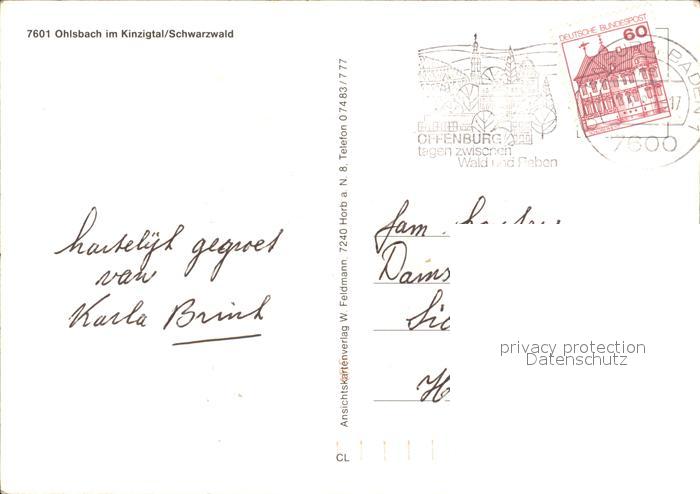 7601 Ohlsbach im Kinzigtal/Schwarzwald
DEUTSCHE BUNDESPOST
60
BADEN 1
7600
OFFENBURG
tagen zwischen
Wald und Reben
Ansichtskartenverlag W. Feldmann, 7240 Horb a. N. 8, Telefon 0 74 83 / 7 77
hartelijk gegroet
van
Karla Brink
fam.
Dams
privacy protection
Datenschutz
H
CL